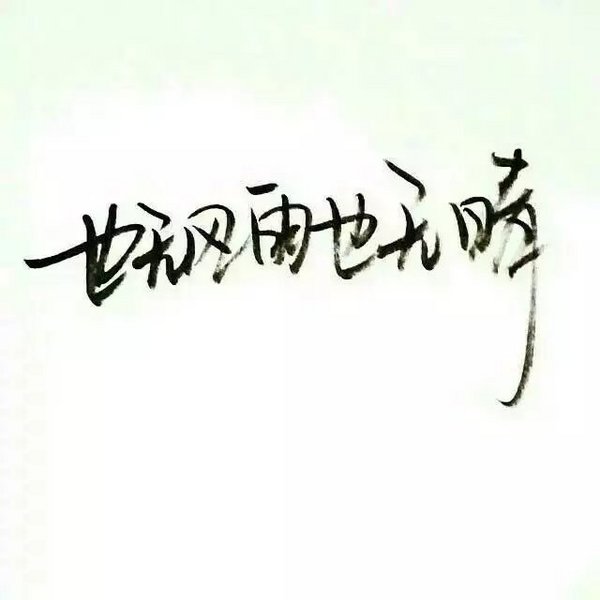 也无风雨也无晴